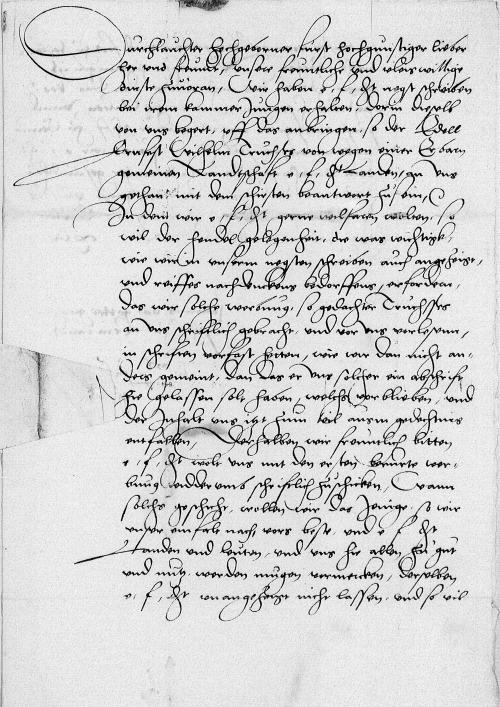 Durchlauchter hochgeborner furst hochgunstiger lieber
her und freundt, Unsere freuntliche und vleiswillige
dinste zuvoran, Wir haben e. f. Dt. negst schreiben
bei irem kammer Jungen erhalten, dorin dieselb
von uns begert, uff das anbringen, so der Edell
Ernfest Wilhelm Truchses von wegen einer Erbarn
gemeinen Landtschafft e. f. Dt Landen, an uns
gethan, mit dem schirsten beantwort zu sein,
In dem wir e. f. Dt gerne wilfaren wolten, so
wil der handel gelegenheit, die was wichtigk,
wie wir in unserm negsten schreiben auch angezeigt,
und reiffes nachdenckens bedorffens, erfordern,
das wir solche werbung, so gedachter Truchses
an uns schrifftlich gebracht, und vor uns vorlesenn,
in schrifften vorfast hetten, wie wir dan nicht an-
ders gemeint, dan das er uns solcher ein abschrifft
hie gelassen solt haben, welchs vorblieben, und
der Inhalt uns itzt zum teil ausm gedechtnis
entfallen, Derhalben wir freuntlich bitten
e. f. Dt wolt uns mit den ersten berurte wer-
bung widderumb schrifftlich zuschicken, Wann
solchs geschicht, wollen wir das Jenige, so wir
unser einfalt nach vors beste, und e. f. Dt
Landen und leuten, und uns hie allen zu gut
und nutz werden mugen vormercken, derselben
e. f. Dt unangezeigt nicht lassen, und so vil